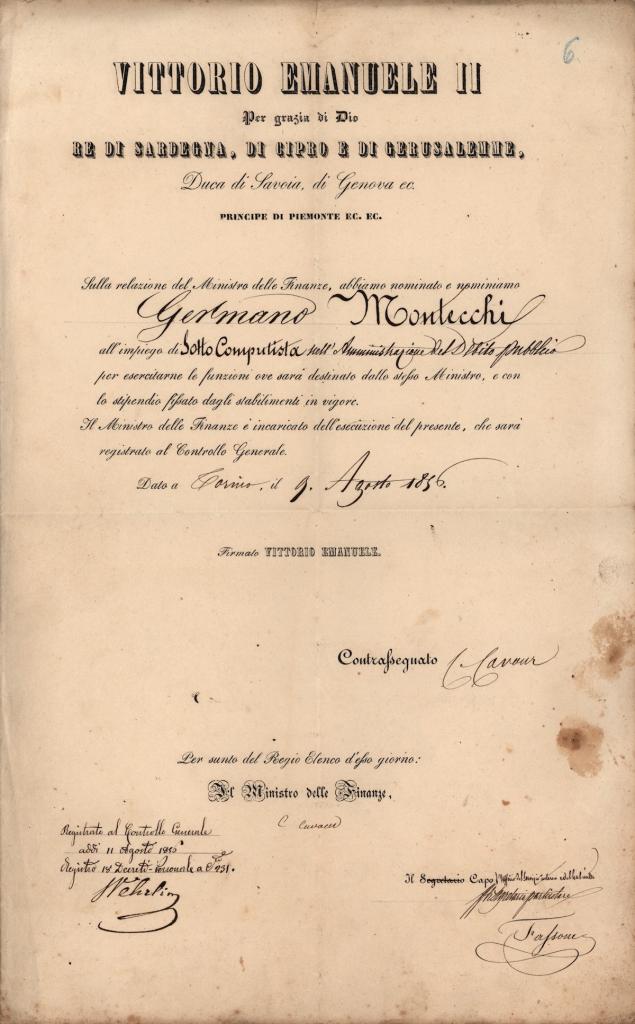 6
VITTORIO EMANUELE II
Per grazia di Dio
RE DI SARDEGNA, DI CIPRO E DI GERUSALEMME,
Duca di Savoia, di Genova ec.
PRINCIPE DI PIEMONTE EC. EC.
Sulla relazione del Ministro delle Finanze, abbiamo nominato e nominiamo
Germano Montecchi
all'impiego di Sotto Computista nell'Amministrazione del Debito pubblico
per esercitarne le funzioni ove sarà destinato dallo stesso Ministro, e con
lo stipendio fissato dagli stabilimenti in vigore.
Il Ministro delle Finanze è incaricato dell'esecuzione del presente, che sarà
registrato al Controllo Generale.
Dato a Torino, il 9. Agosto 1856.
Firmato VITTORIO EMANUELE.
Contrassegnato C. Cavour
Per sunto del Regio Elenco d'esso giorno:
Il Ministro delle Finanze,
C Cavour
Registrato al Controllo Generale
addì 11 Agosto 1856
Registro 18 Decreti-Personale a C.te 231.
Wehrlin
Il Segretario Capo
Fassone